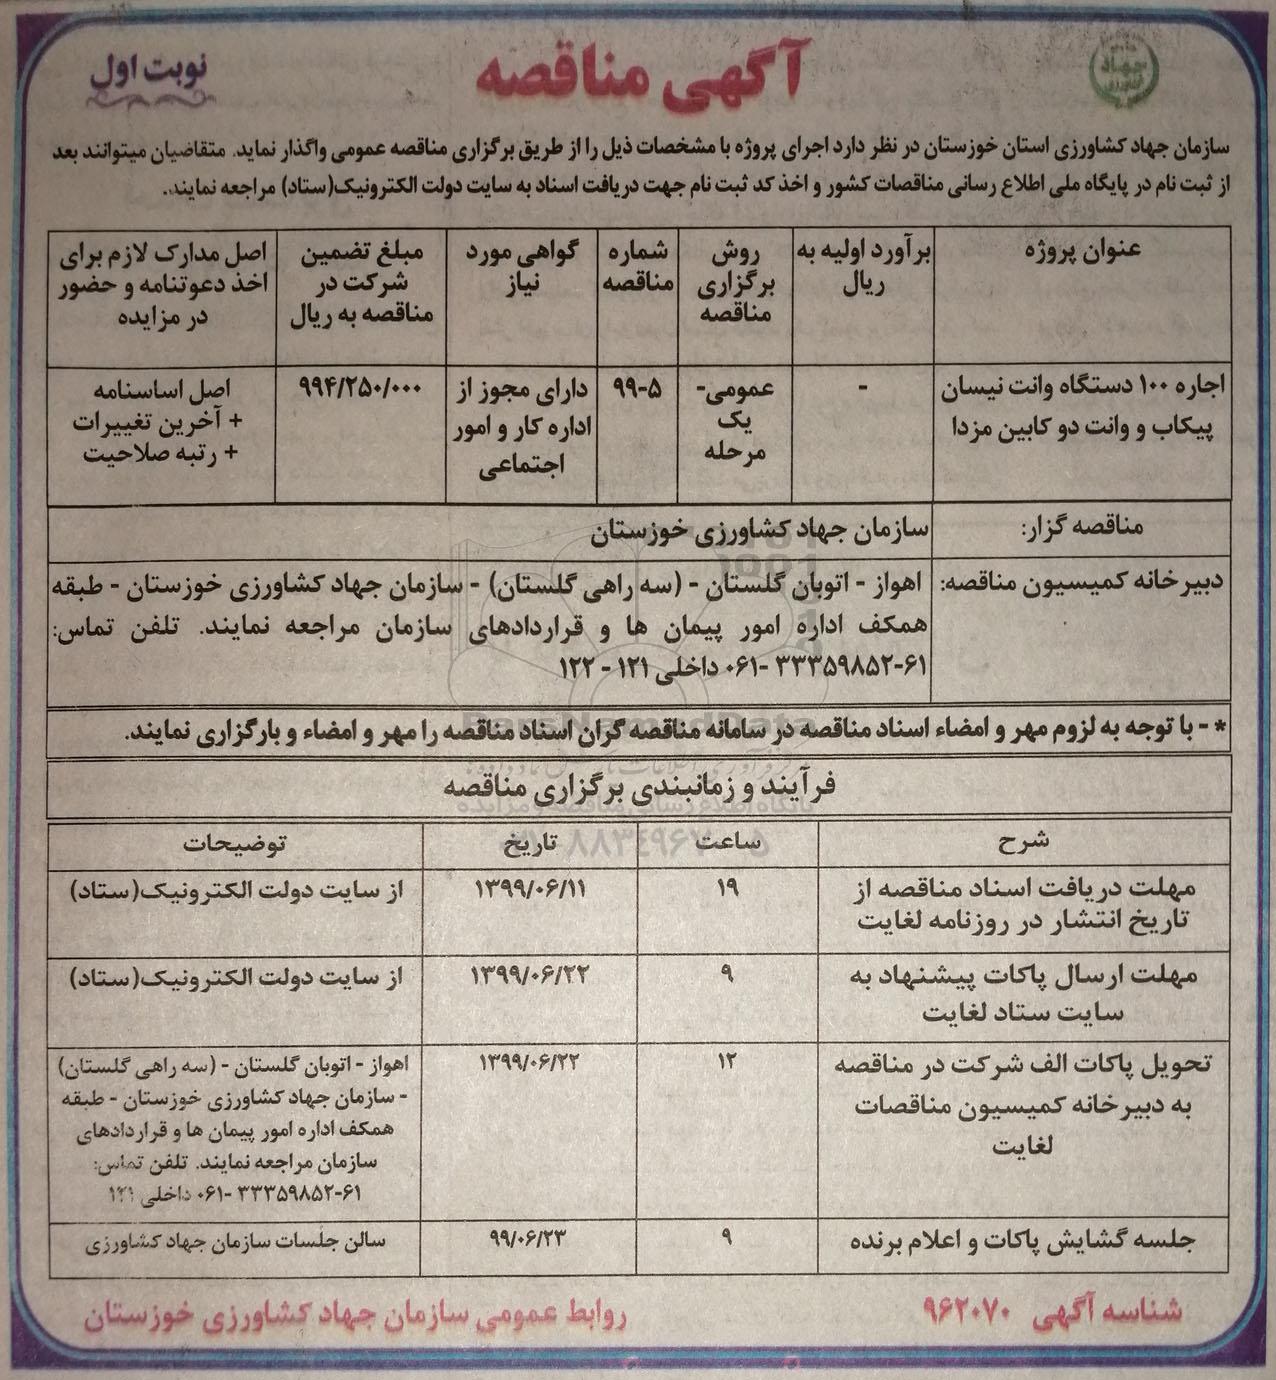 آگهی مناقصه
نوبت اول
جهاد
سازمان جهاد کشاورزی استان خوزستان در نظر دارد اجرای پروژه با مشخصات ذیل را از طریق برگزاری مناقصه عمومی واگذار نماید. متقاضیان میتوانند بعد
از ثبت نام در پایگاه ملی اطلاع رسانی مناقصات کشور و اخذ کد ثبت نام جهت دریافت اسناد به سایت دولت الکترونیک(ستاد) مراجعه نمایند.
عنوان پروژه
برآورد اولیه به
ریال
روش
برگزاری
مناقصه
شماره
مناقصه
گواهی مورد
نیاز
مبلغ تضمین
شرکت در
مناقصه به ریال
اصل مدارک لازم برای
اخذ دعوتنامه و حضور
در مزایده
اجاره ۱۰۰ دستگاه وانت نیسان
پیکاپ و وانت دو کابین مزدا
-
عمومی-
یک
مرحله
۹۹-۵
دارای مجوز از
اداره کار و امور
اجتماعی
۹۹۴/۲۵۰/۰۰۰
اصل اساسنامه
+ آخرین تغییرات
+ رتبه صلاحیت
مناقصه گزار:
سازمان جهاد کشاورزی خوزستان
دبیرخانه کمیسیون مناقصه:
اهواز - اتوبان گلستان - (سه راهی گلستان) - سازمان جهاد کشاورزی خوزستان - طبقه
همکف اداره امور پیمان ها و قراردادهای سازمان مراجعه نمایند. تلفن تماس:
۰۶۱- ۳۳۳۵۹۸۵۲-۶۱ داخلی ۱۲۱ - ۱۲۲
* - با توجه به لزوم مهر و امضاء اسناد مناقصه در سامانه مناقصه گران اسناد مناقصه را مهر و امضاء و بارگزاری نمایند.
فرآیند و زمانبندی برگزاری مناقصه
شرح
ساعت
تاریخ
توضیحات
مهلت دریافت اسناد مناقصه از
تاریخ انتشار در روزنامه لغایت
۱۹
۱۳۹۹/۰۶/۱۱
از سایت دولت الکترونیک(ستاد)
مهلت ارسال پاکات پیشنهاد به
سایت ستاد لغایت
۹
۱۳۹۹/۰۶/۲۲
از سایت دولت الکترونیک(ستاد)
تحویل پاکات الف شرکت در مناقصه
به دبیرخانه کمیسیون مناقصات
لغایت
۱۲
۱۳۹۹/۰۶/۲۲
اهواز - اتوبان گلستان - (سه راهی گلستان)
- سازمان جهاد کشاورزی خوزستان - طبقه
همکف اداره امور پیمان ها و قراردادهای
سازمان مراجعه نمایند. تلفن تماس:
۰۶۱- ۳۳۳۵۹۸۵۲-۶۱ داخلی ۱۲۱
جلسه گشایش پاکات و اعلام برنده
۹
۹۹/۰۶/۲۳
سالن جلسات سازمان جهاد کشاورزی
شناسه آگهی ۹۶۲۰۷۰
روابط عمومی سازمان جهاد کشاورزی خوزستان
ParsNamadData